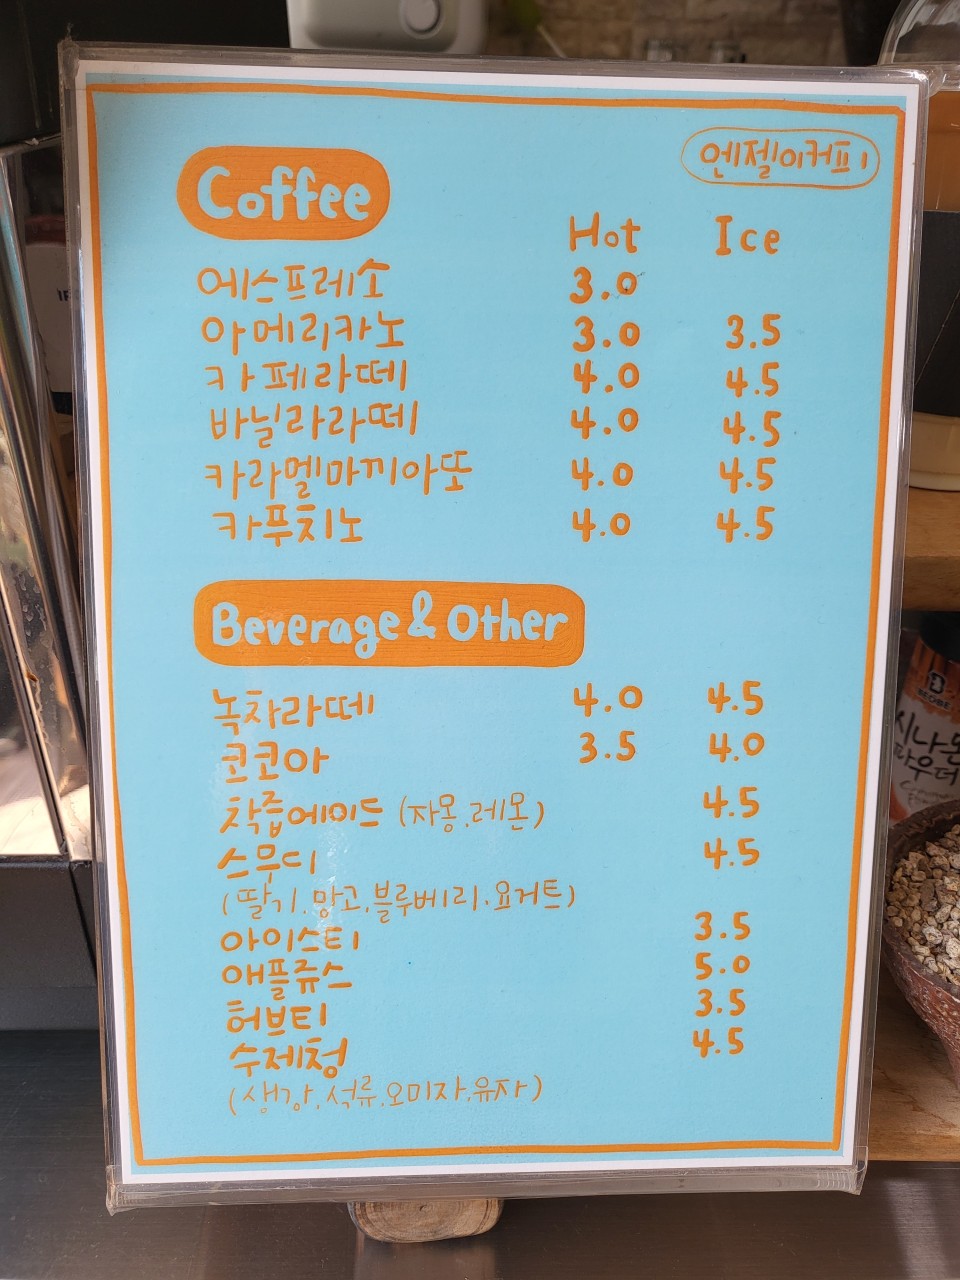 엔젤이커피
Coffee
Hot Ice
에스프레소 3.0
아메리카노 3.0 3.5
카페라떼 4.0 4.5
바닐라라떼 4.0 4.5
카라멜마끼아또 4.0 4.5
카푸치노 4.0 4.5
Beverage & Other
녹차라떼 4.0 4.5
코코아 3.5 4.0
착즙에이드 (자몽.레몬) 4.5
스무디 4.5
(딸기.망고.블루베리.요거트)
아이스티 3.5
애플쥬스 5.0
허브티 3.5
수제청 4.5
(생강.석류.오미자.유자)
시나몬
파우더